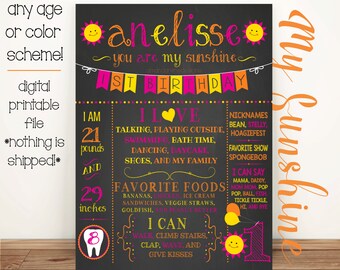 any age
or color
scheme!
digital
printable
file
*nothing is
shipped!*
anelisse
you are my sunshine
1ST BIRTHDAY
I AM
21
pounds
AND
29
inches
8
I LOVE
TALKING, PLAYING OUTSIDE,
BATH TIME,
DANCING, PANCAKE,
SHOES, AND MY FAMILY
FAVORITE FOODS
BANANAS, ICE CREAM
SANDWICHES, VEGGIE STRAWS,
GOLDFISH,
I CAN
WAVE, CLIMB STAIRS,
CLAP, WALK AND
GIVE KISSES
NICKNAMES
BEAN,
HOAGIEFEST
FAVORITE SHOW
SPONGEBOB
I CAN SAY
MAMA, DADDY,
POP, BALL, FISH
TICKLE TICKLE,
HI, AND
1
My Sunshine